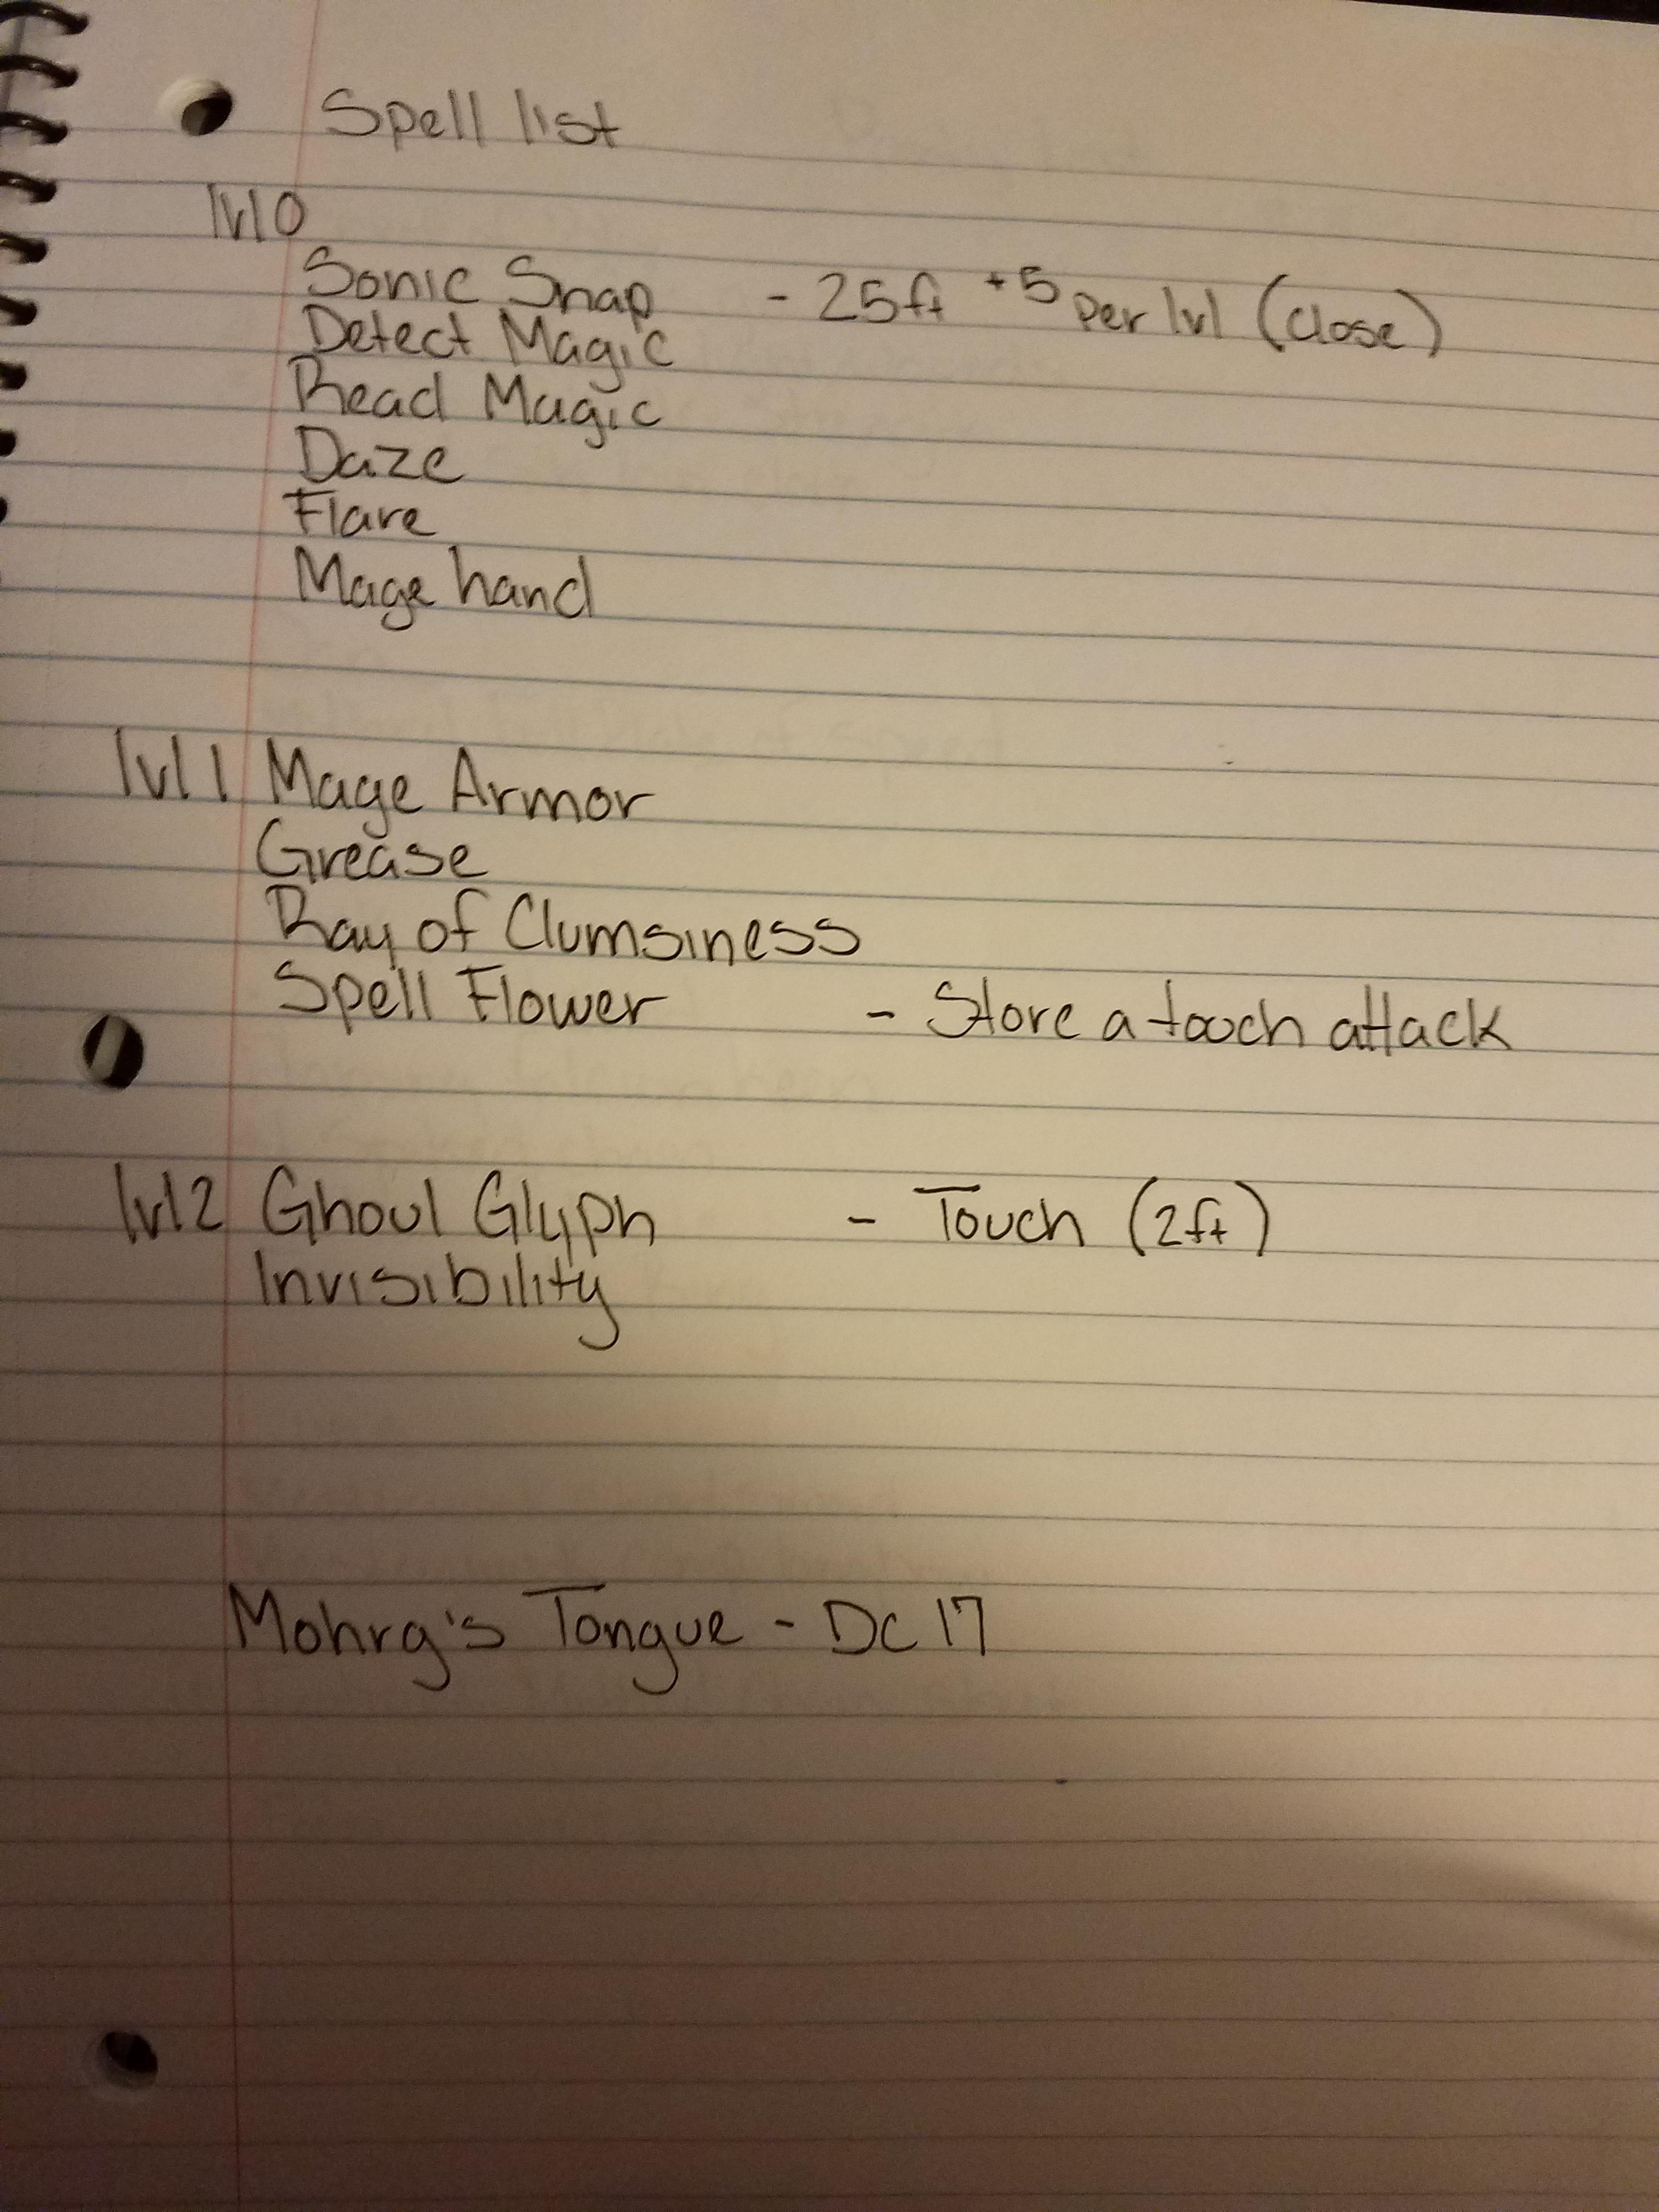 Spell list
lvl 0
Sonic Snap - 25ft +5 per lvl (close)
Detect Magic
Read Magic
Daze
Flare
Mage hand
lvl 1 Mage Armor
Grease
Ray of Clumsiness
Spell Flower - Store a touch attack
lvl 2 Ghoul Glyph - Touch (2ft)
Invisibility
Mohrg's Tongue - DC 17